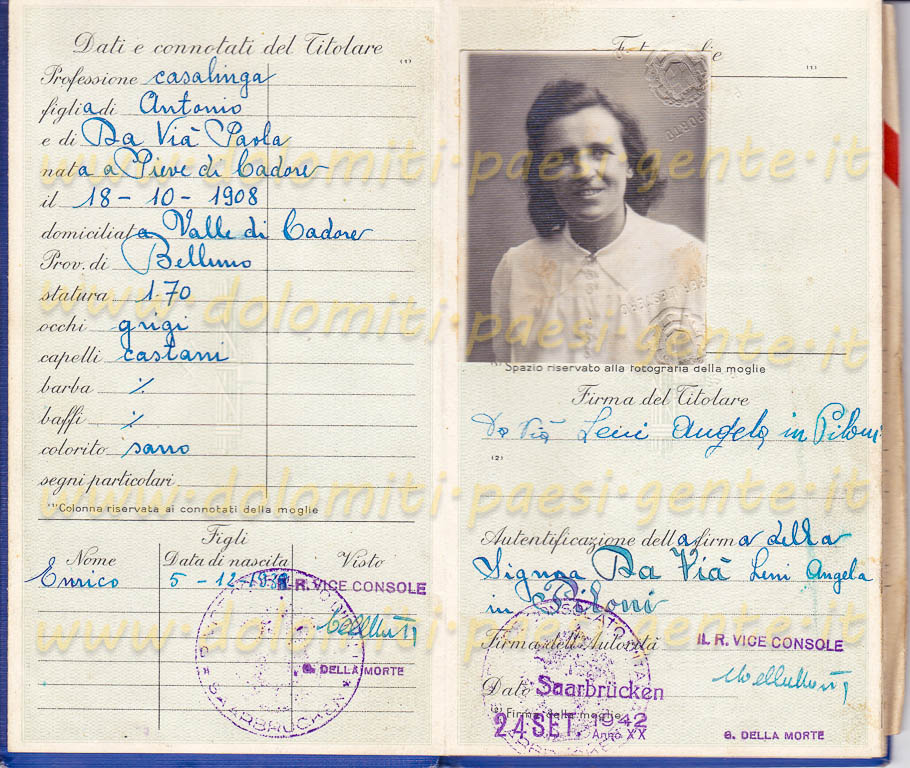 Dati e connotati del Titolare
(1)
Professione casalinga
figlia di Antonio
e di Da Vià Paola
nata a Pieve di Cadore
il 18-10-1908
domiciliata Valle di Cadore
Prov. di Belluno
statura 1.70
occhi grigi
capelli castani
barba %
baffi %
colorito sano
segni particolari
(1) Colonna riservata ai connotati della moglie
Figli
Nome Data di nascita Visto
Enrico 5-12-193
IL R. VICE CONSOLE
G. DELLA MORTE
SAARBRÜCKEN
(1)
(1) Spazio riservato alla fotografia della moglie
Firma del Titolare
Da Vià Leni Angela in Piloni
(2)
Autentificazione della firma della
Signora Da Vià Leni Angela
in Piloni
Firma dell'Autorità IL R. VICE CONSOLE
Data Saarbrücken
(2) Firma della moglie
24 SET. 1942
Anno XX
G. DELLA MORTE
www.dolomiti-paesi-gente.it
www.dolomiti-paesi-gente.it
www.dolomiti-paesi-gente.it
www.dolomiti-paesi-gente.it